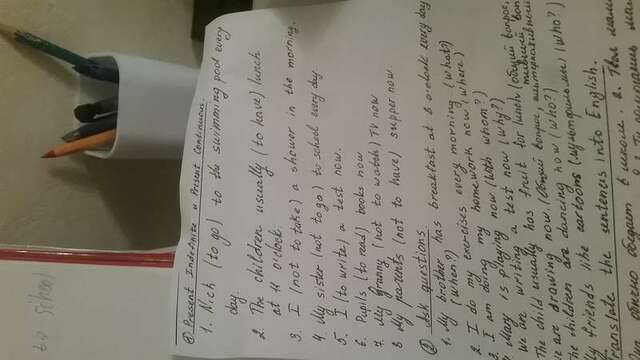 to school
① Present Indefinite и Present Continuous.
1. Nick (to go) to the swimming pool every
day
2. The children usually (to have) lunch
at 11 o'clock.
3. I (not to take) a shower in the morning.
4. My sister (not to go) to school every day.
5. I (to write) a test now.
6. Pupils (to read) books now
7. My granny (not to watch) TV now
8 My parents (not to have) supper now.
② Ask questions
1. My brother has breakfast at 8 o'clock every day
(when?)
2. I do my exercises every morning (what?)
3. I am doing my homework now (where)
Mary is playing now (with whom?)
We are writing a test now (why?)
The child usually has fruit for lunch (общий вопрос,
We are drawing now. (Общий вопрос, альтернативный
The children are dancing now (who?)
My friends like cartoons (мультфильмы) (who?)
Translate the sentences into English.
обычно обедает в школе. 2. Твоя мама